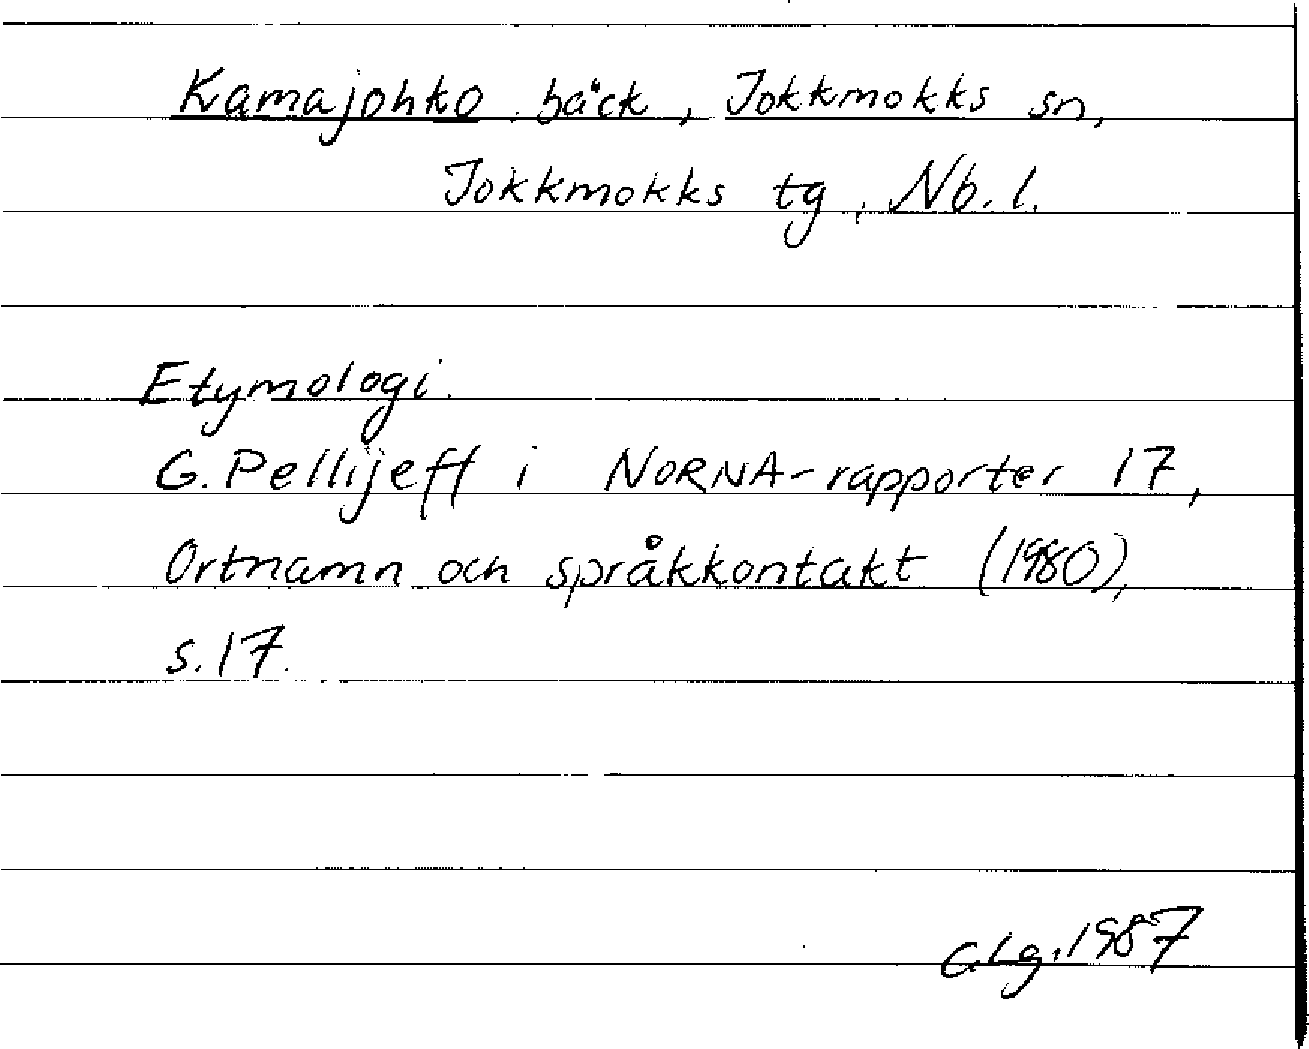 Kamajohko, bäck, Jokkmokks sn,
Jokkmokks tg, Nb. l.
Etymologi.
G. Pellijeff i NORNA-rapporter 17,
Ortnamn och språkkontakt (1980),
s. 17.
C.Lg. 1987